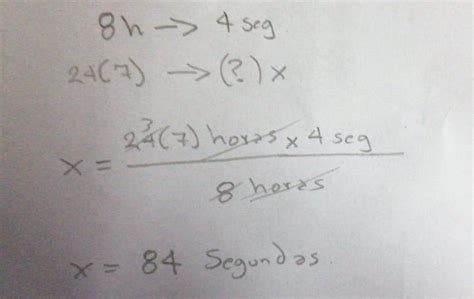 8h → 4 seg
24(7) → (?) x
3
x = 24(7) horas x 4 seg
8 horas
x = 84 Segundos.